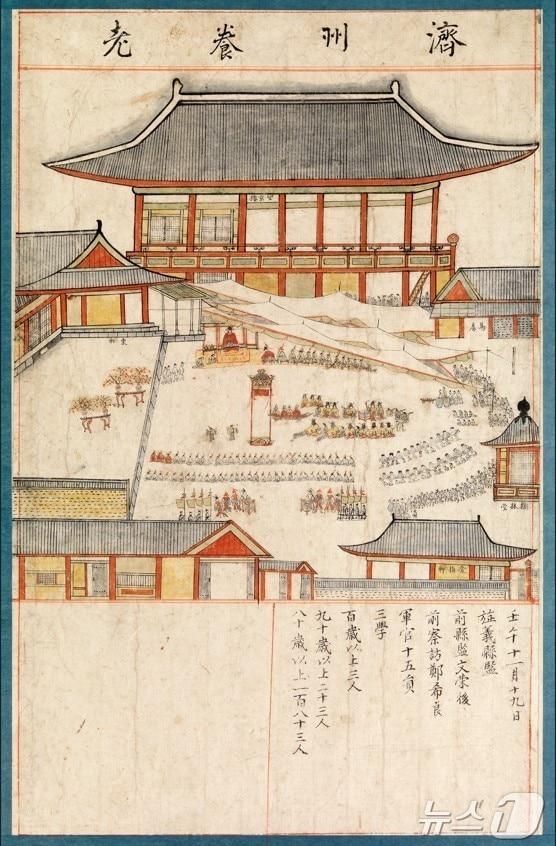 濟州養老
望京樓
橘林堂
壬午十一月十九日
旌義縣監
前縣監文榮後
前察訪鄭希良
軍官十五員
三學
百歲以上三人
九十歲以上二十三人
八十歲以上一百八十三人
뉴스1